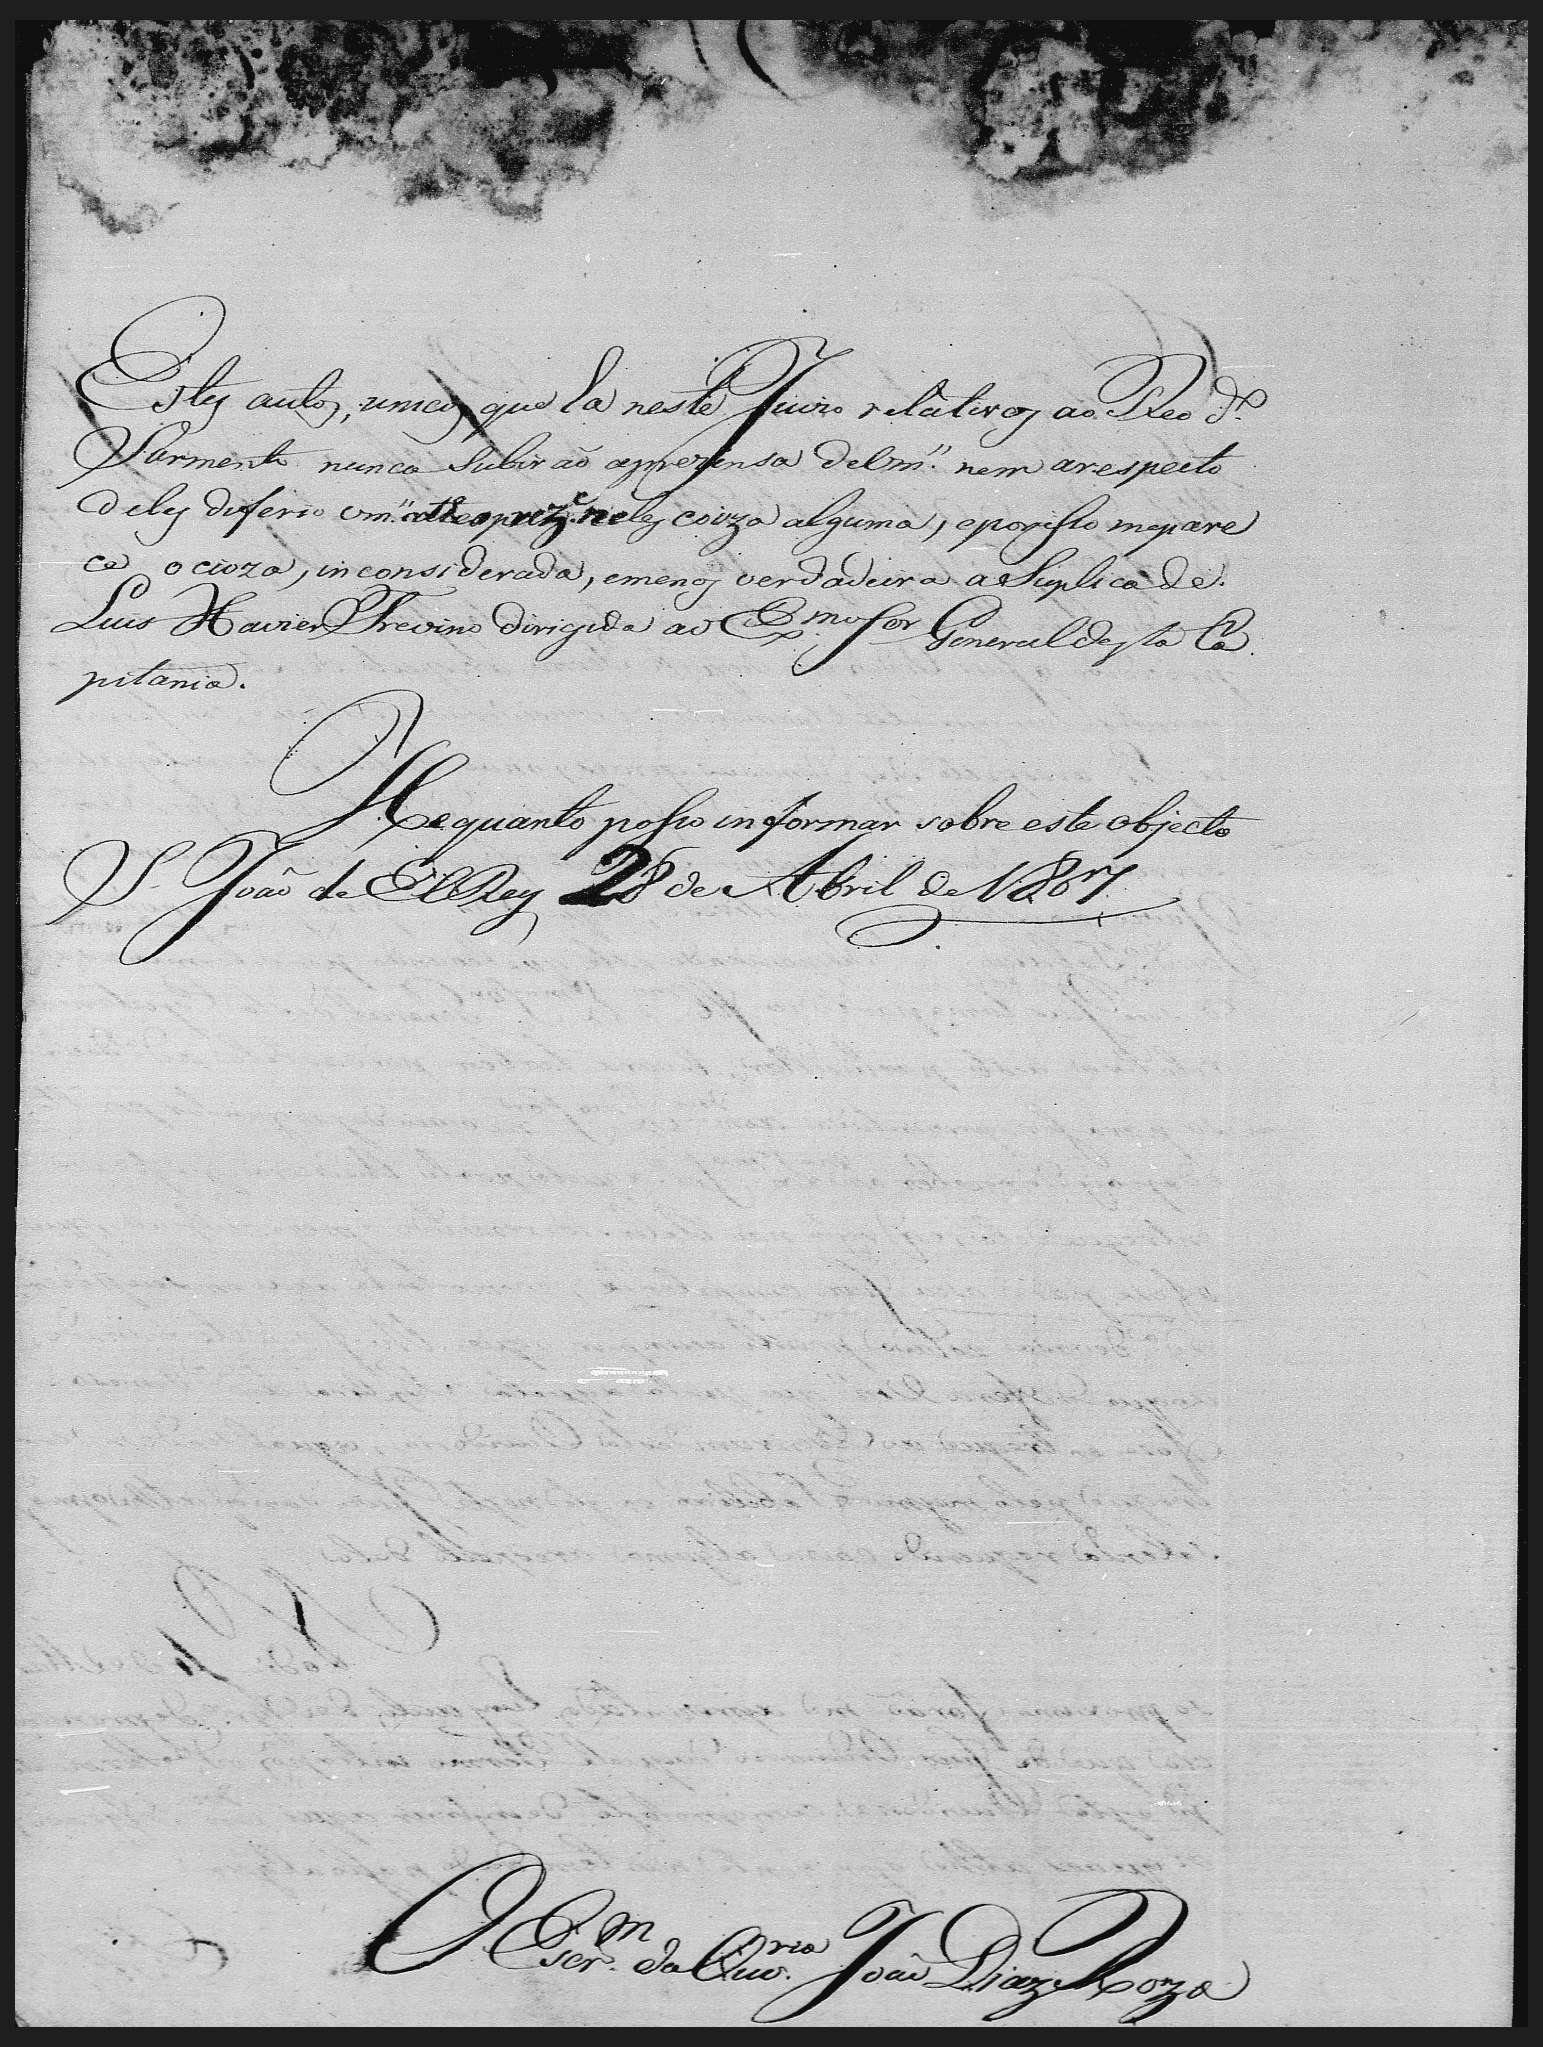 Estes autos, unicos que ha neste Juizo relativos ao Reo d.º
Sarmento nunca Subirão aprezensa de Vm.ᶜᵉ nem arespeito
deles deferio Vm.ᶜᵉ neles couza alguma, eporisso mepare
ce ocioza, inconsiderada, emenos verdadeira a Suplica de
Luis Xavier Trevino dirigida ao Ex.mo Sor General desta Ca
pitania.
He quanto posso informar sobre este objecto
S. João de ElRey 28 de Abril de 1807
O Escr.m da Ouv.ria João Diaz Roza